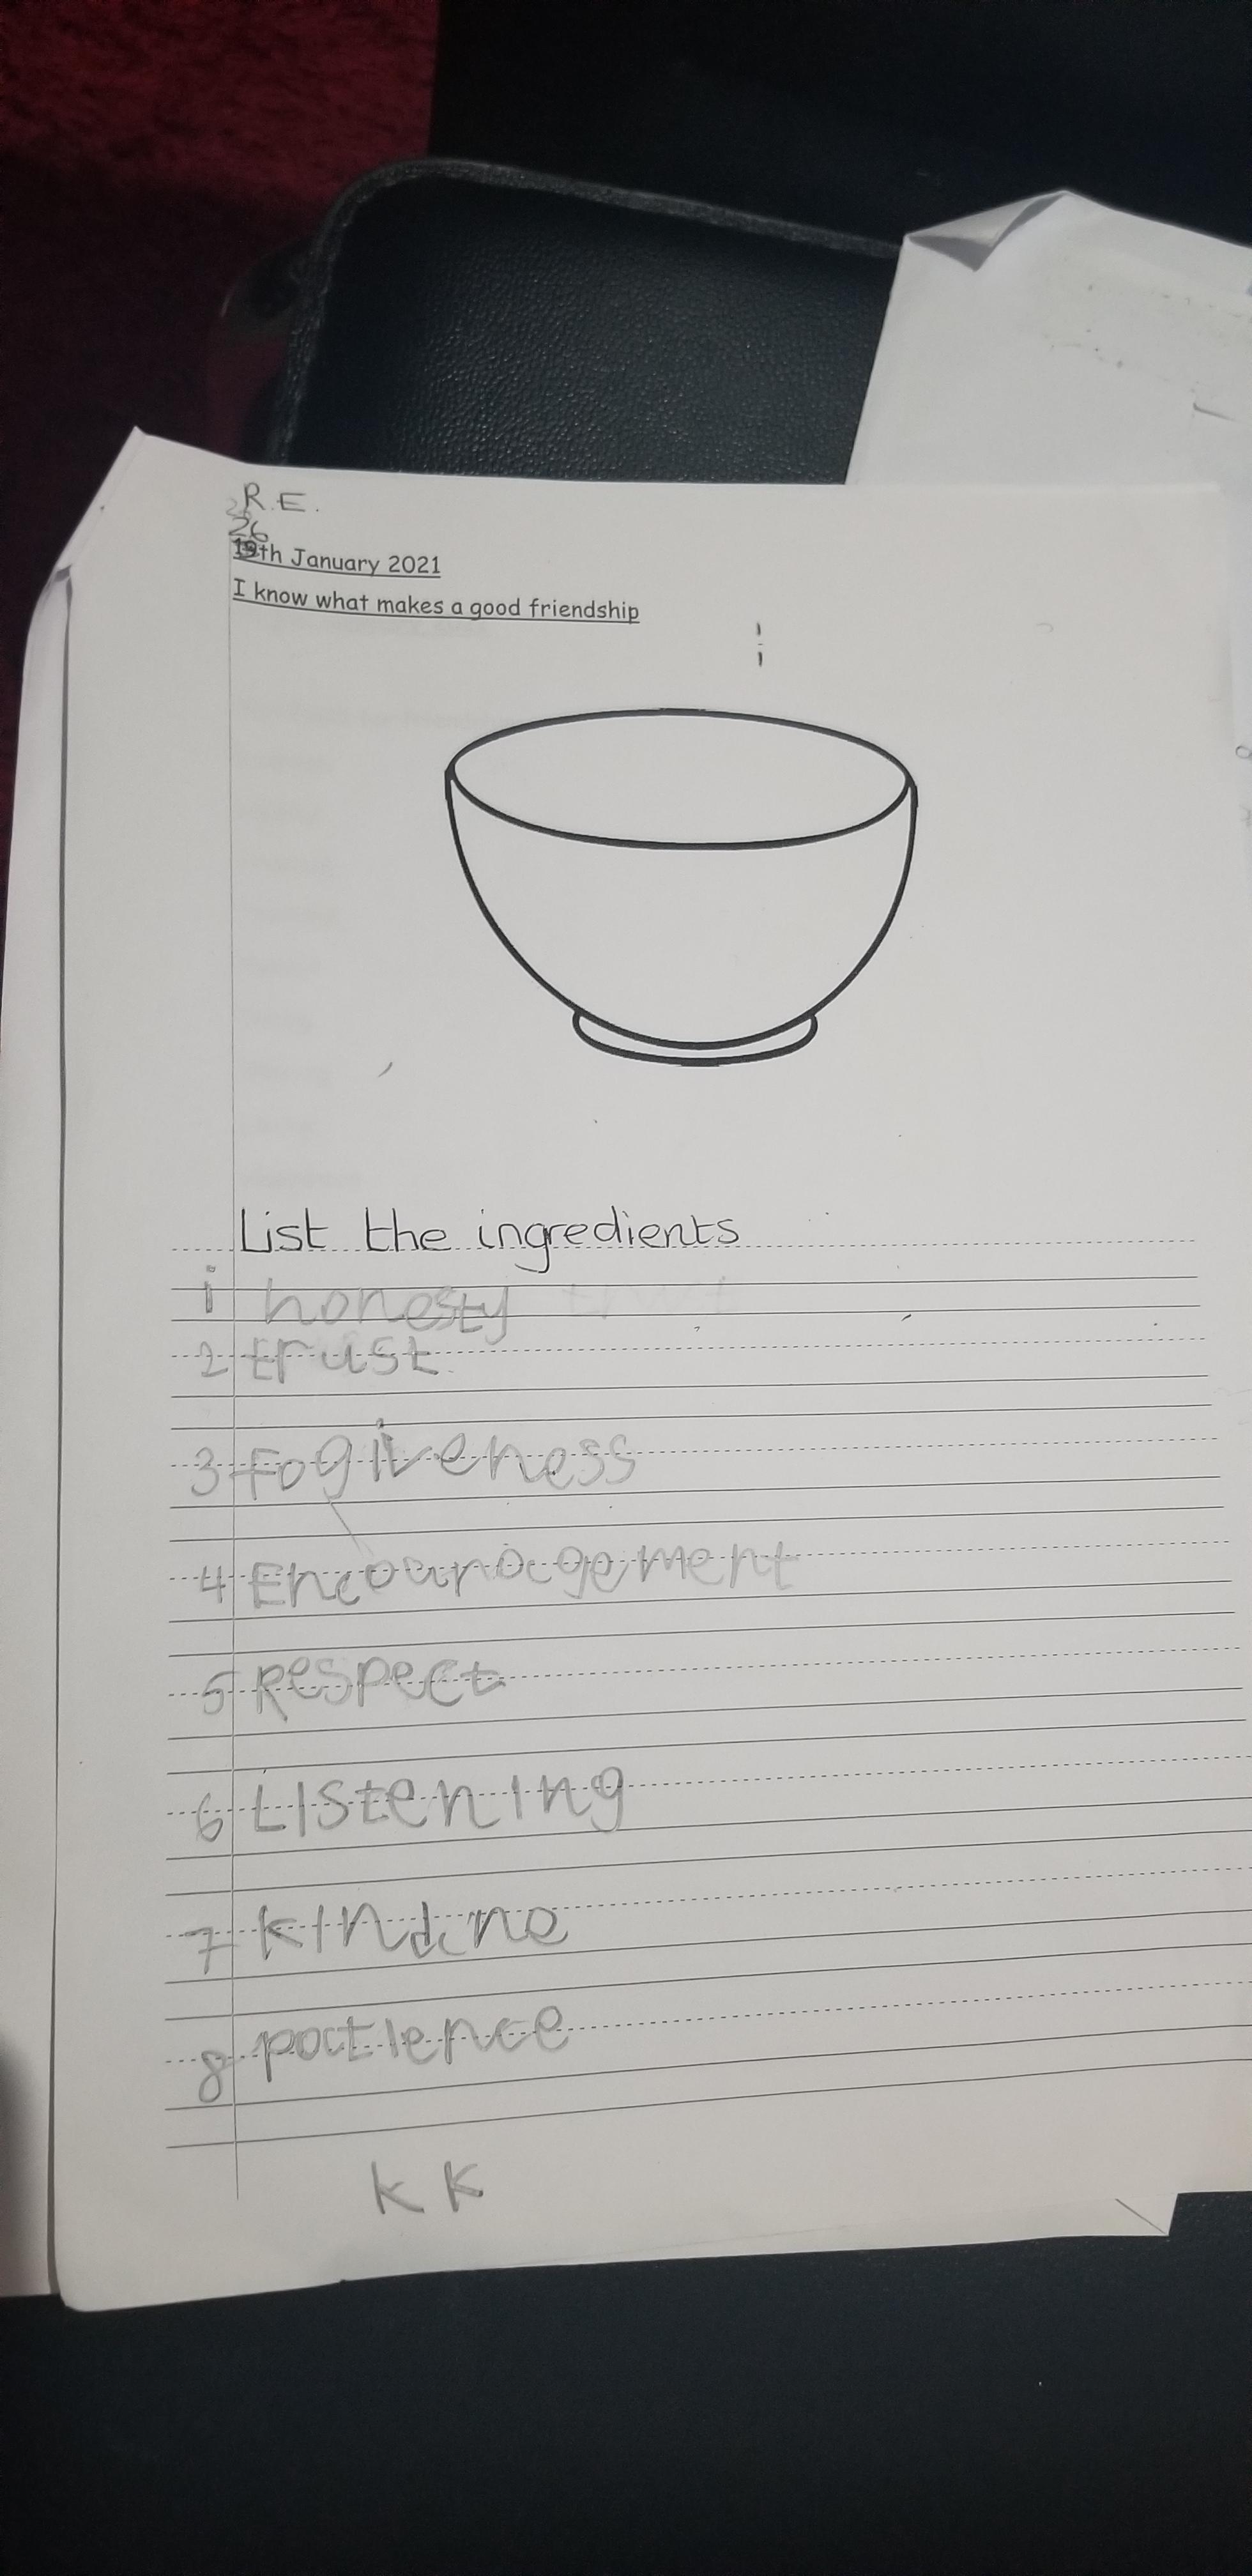 R.E.
26
19th January 2021
I know what makes a good friendship
List the ingredients
1 honesty
2 trust.
3 Fogiveness
4 Encouragement
5 Respect
6 Listening
7 Kindne
8 patience
K K